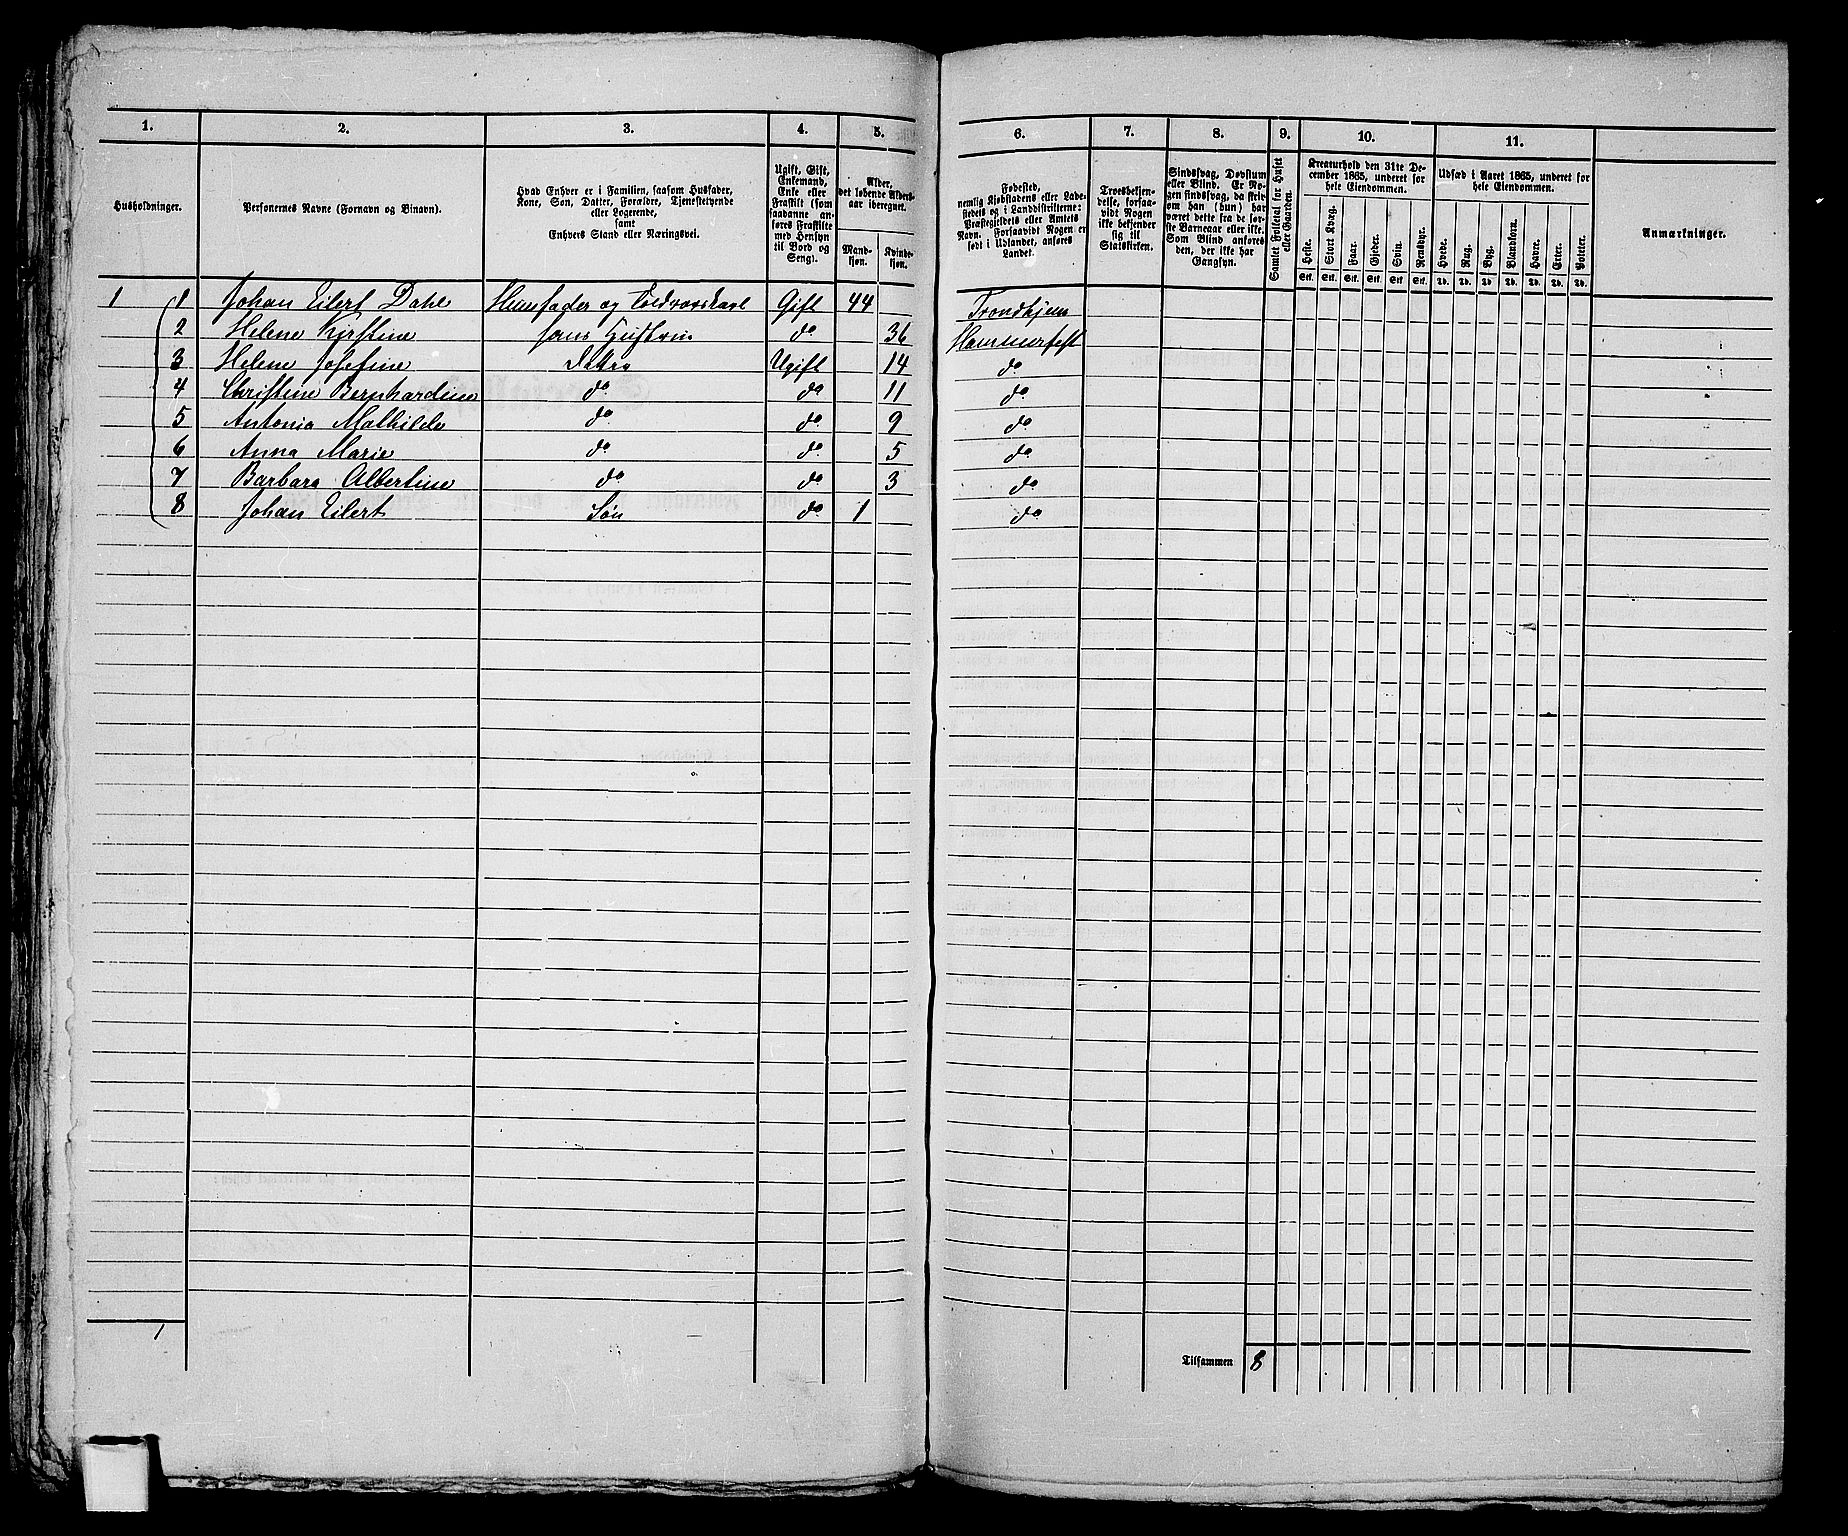 1. 2. 3. 4. 5. 6. 7. 8. 9. 10. 11.
Husholdninger.
Personernes Navne (Fornavn og Binavn).
Hvad Enhver er i Familien, saasom Husfader,
Kone, Søn, Datter, Forældre, Tjenestetyende
eller Logerende,
samt
Enhvers Stand eller Næringsvei.
Ugift, Gift,
Enkemand,
Enke eller
Fraskilt (som
saadanne an-
føres Fraskilte
med Hensyn
til Bord og
Seng).
Alder,
det løbende Alders-
aar iberegnet.
Mand-
kjøn.
Kvinde-
kjøn.
Fødested,
nemlig Kjøbstadens eller Lade-
stedets og i Landdistrikterne:
Præstegjeldets eller Amtets
Navn. Forsaavidt Nogen er
født i Udlandet, anføres
Landet.
Troesbekjen-
delse, forsaa-
vidt Nogen
ikke bekjender
sig til
Statskirken.
Sindssvag, Døvstum
eller Blind. Er No-
gen sindssvag, da skriv
om han (hun) har
været dette fra de før-
ste Barneaar eller ikke.
Som Blind anføres
den, der ikke har
Gangsyn.
Samlet Folketal for Huset
eller Gaarden.
Kreaturhold den 31te De-
cember 1865, underet for
hele Eiendommen.
Heste. Stort Kvæg. Faar. Gjeder. Svin. Rensdyr.
Stk. Stk. Stk. Stk. Stk. Stk.
Udsæd i Aaret 1865, underet for
hele Eiendommen.
Hvede. Rug. Byg. Blandkorn. Havre. Erter. Poteter.
Td. Td. Td. Td. Td. Td. Td.
Anmærkninger.
1 1 Johan Eilert Dahl Huusfader og Toldrorskarl Gift 44 Trondhjem
2 Helene Kirstine hans Hustru do 36 Hammerfest
3 Helene Josefine Datter Ugift 14 do
4 Christine Bernhardine do do 11 do
5 Antonia Mathilde do do 9 do
6 Anna Marie do do 5 do
7 Barbara Albertine do do 3 do
8 Johan Eilert Søn do 1 do
1
Tilsammen 8